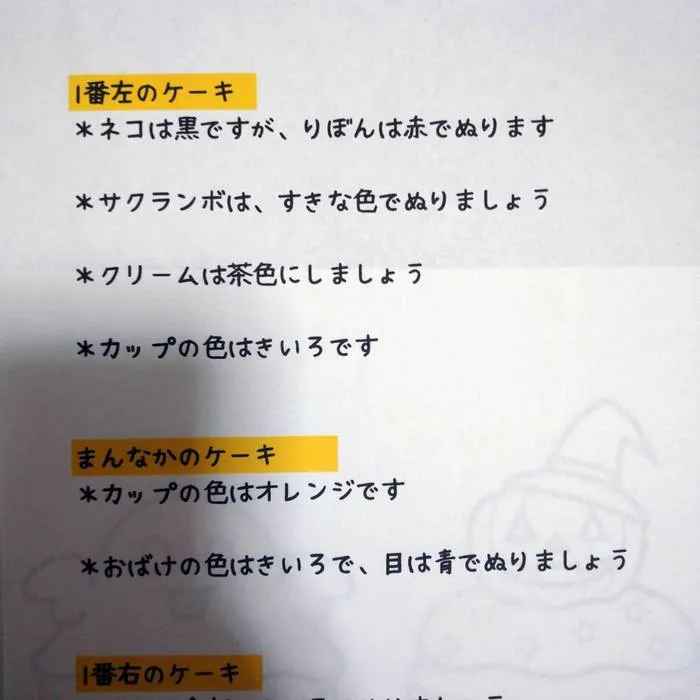 1番左のケーキ
*ネコは黒ですが、りぼんは赤でぬります
*サクランボは、すきな色でぬりましょう
*クリームは茶色にしましょう
*カップの色はきいろです
まんなかのケーキ
*カップの色はオレンジです
*おばけの色はきいろで、目は青でぬりましょう
1番右のケーキ